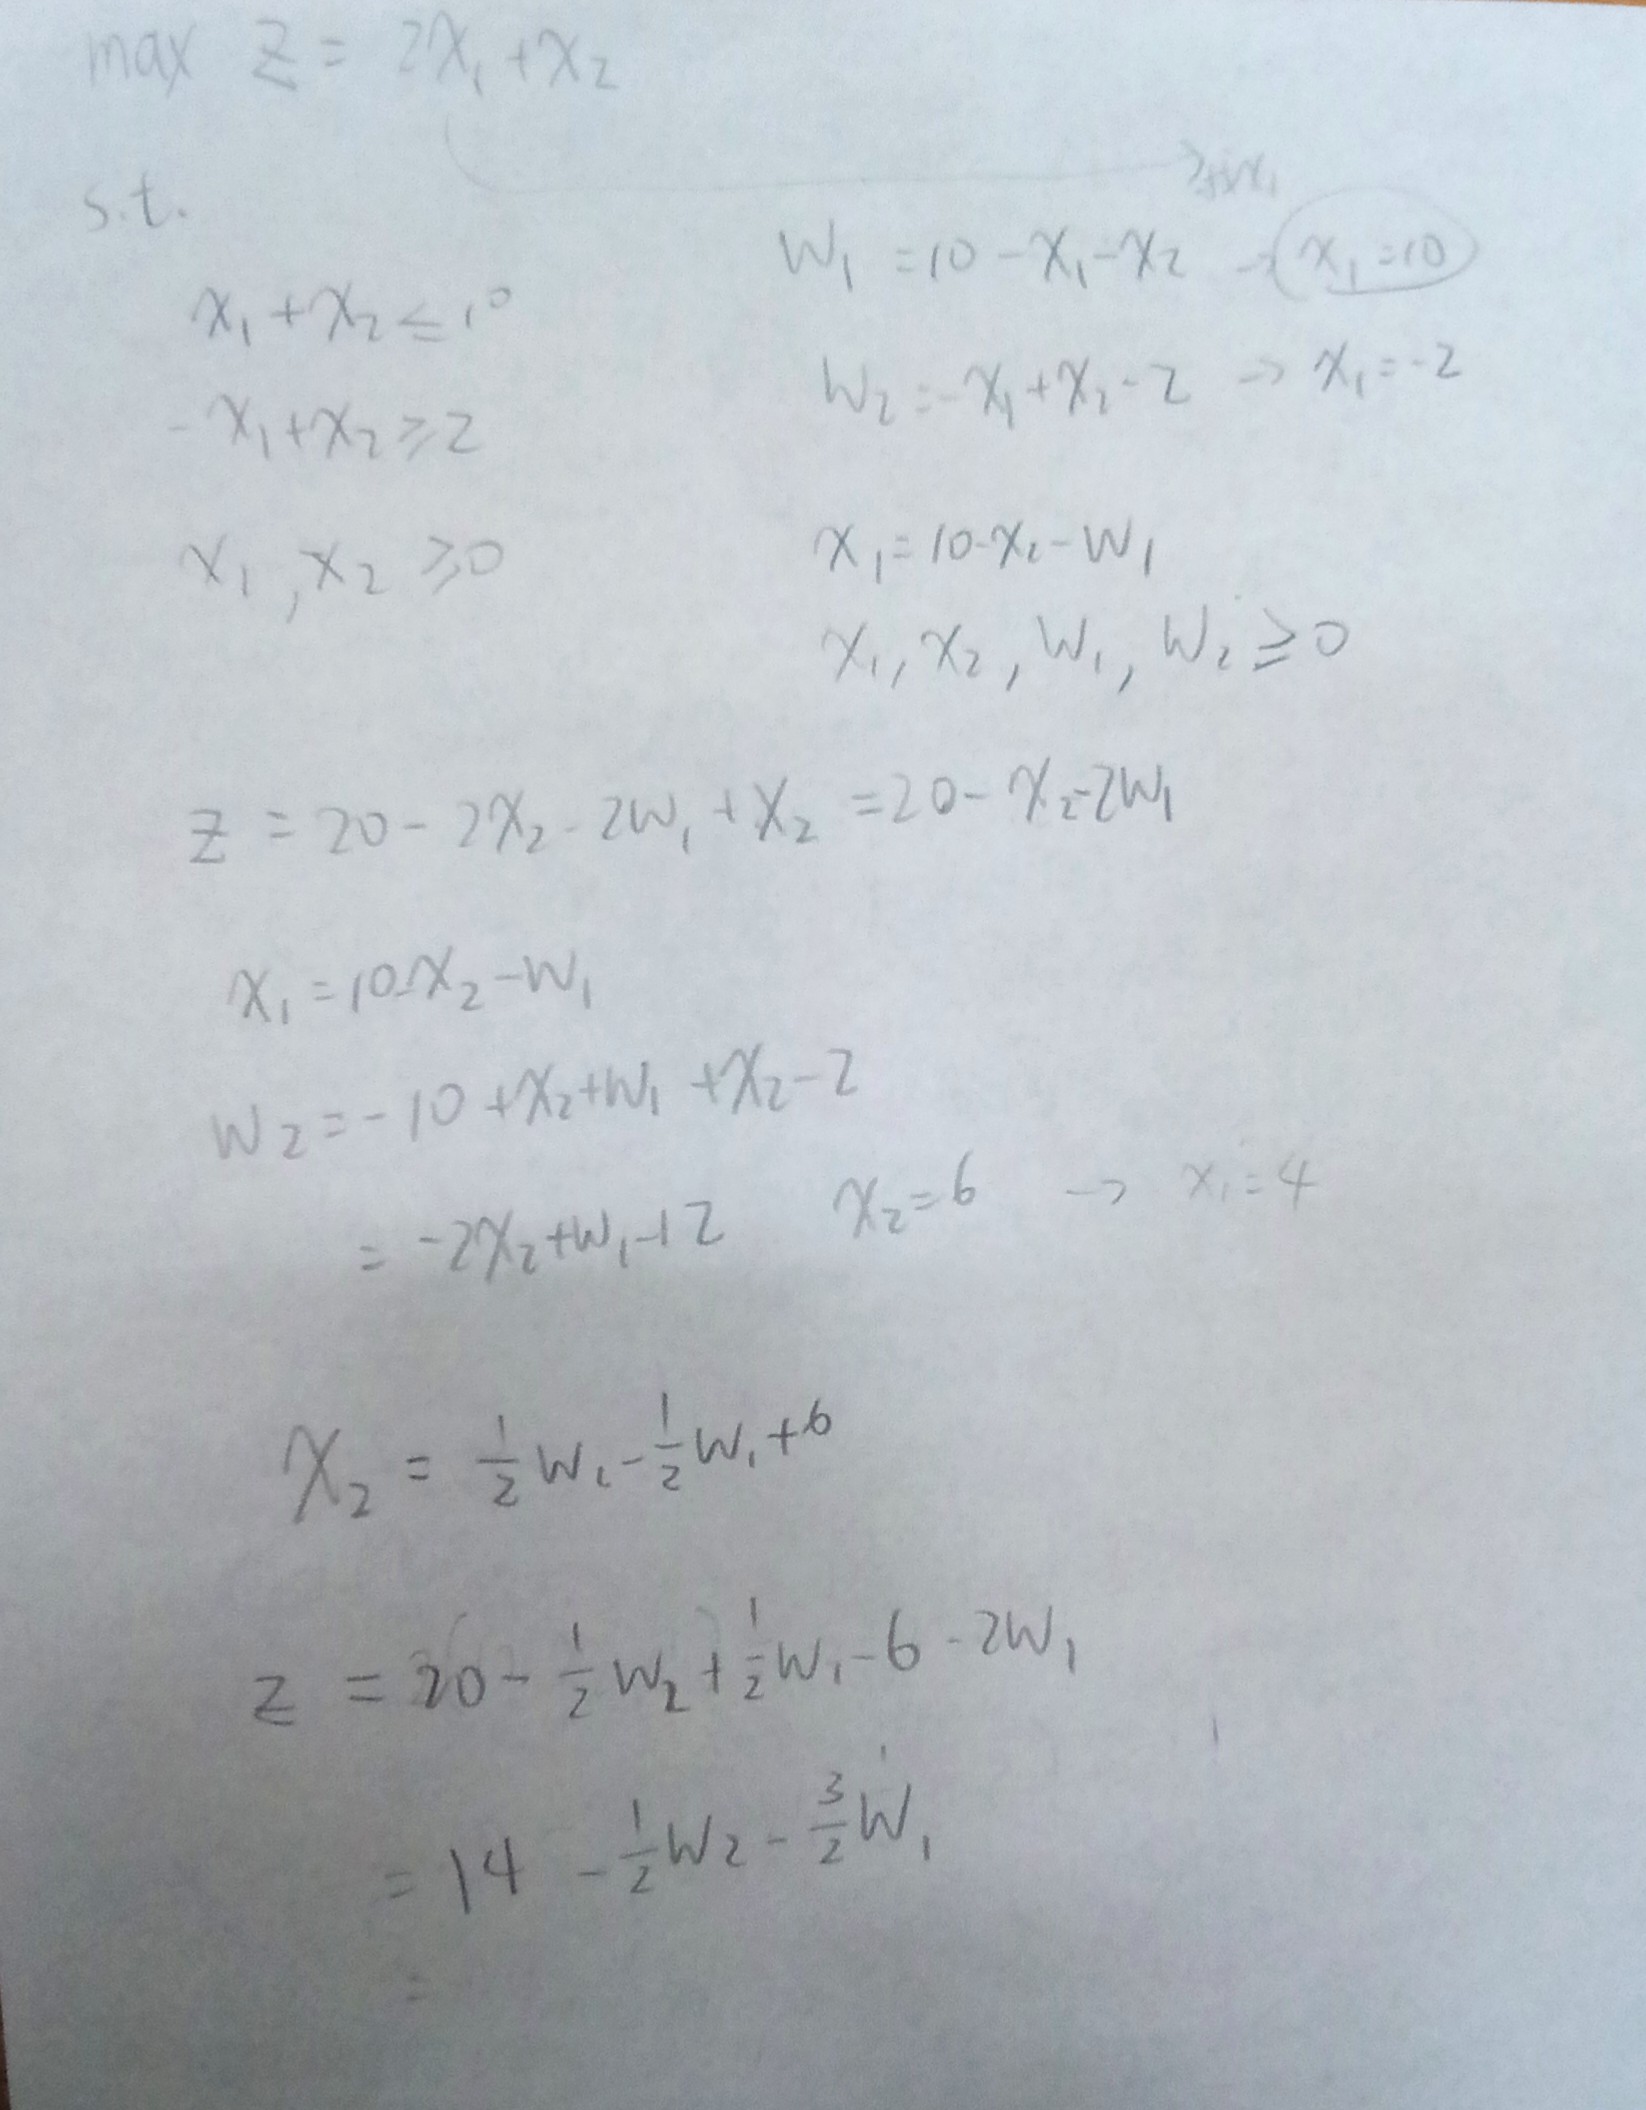 max z = 2x₁+x₂
s.t.
x₁+x₂≤10
-x₁+x₂≥2
x₁,x₂≥0
w₁=10-x₁-x₂→x₁=10
w₂=-x₁+x₂-2→x₁=-2
x₁=10-x₂-w₁
x₁,x₂,w₁,w₂≥0
z=20-2x₂-2w₁+x₂=20-x₂-2w₁
x₁=10-x₂-w₁
w₂=-10+x₂+w₁+x₂-2
=-2x₂+w₁-12 x₂=6→x₁=4
x₂=½w₂-½w₁+6
z=20-½w₂+½w₁-6-2w₁
=14-½w₂-3/2w₁
=